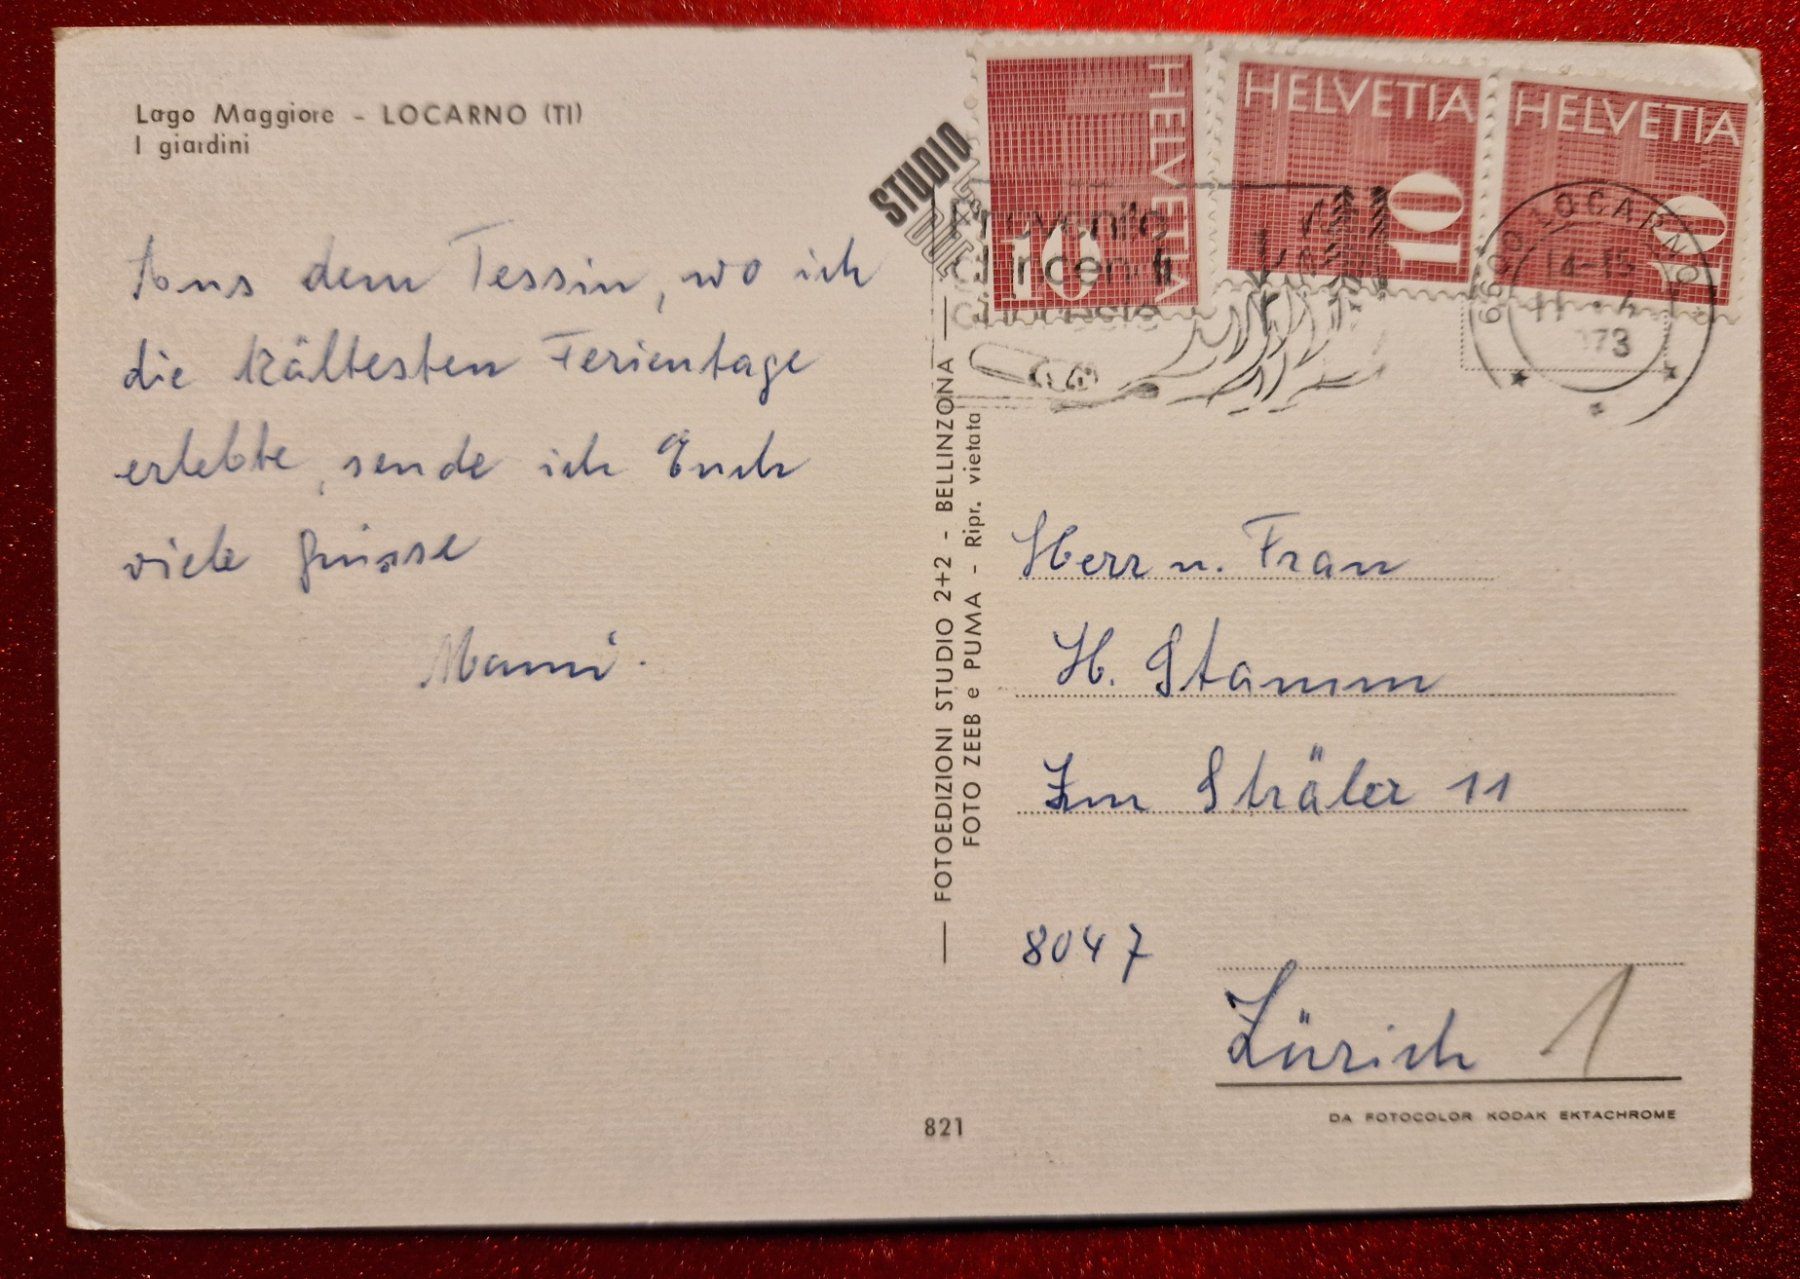 Lago Maggiore - LOCARNO (TI)
I giardini
Aus dem Tessin, wo ich
die kältesten Ferientage
erlebte, sende ich Euch
viele Grüsse
Mami.
STUDIO
DUE
— FOTOEDIZIONI STUDIO 2+2 - BELLINZONA —
FOTO ZEEB e PUMA - Ripr. vietata
HELVETIA 10
HELVETIA 10
HELVETIA 10
Prevenite
gli incendi
6600 LOCARNO
14-15
11. 4
973
Herr u. Frau
H. Stamm
Im Sträler 11
8047
Zürich 1
821
DA FOTOCOLOR KODAK EKTACHROME